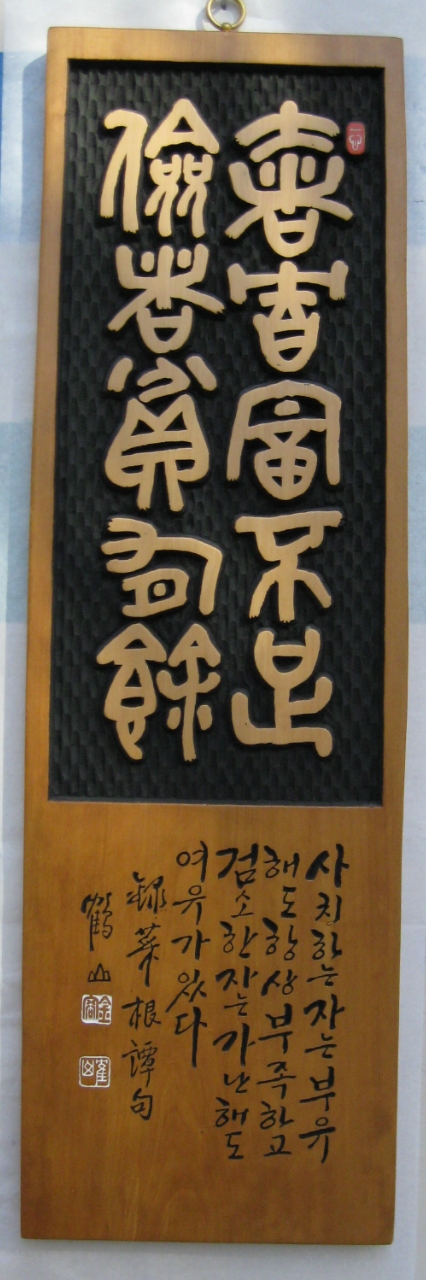 奢者富不足
儉者貧有餘
사치하는자는부유
해도항상부족하고
검소한자는가난해도
여유가있다
錄菜根譚句
鶴山